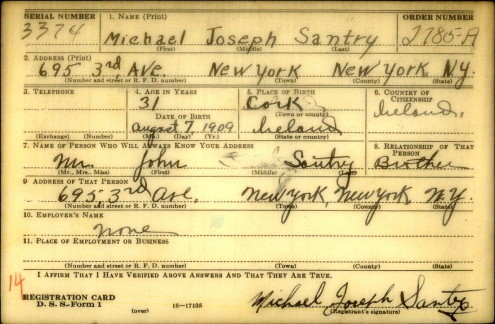 SERIAL NUMBER 1. NAME (Print) ORDER NUMBER
3374 Michael Joseph Santry 2785-A
(First) (Middle) (Last)
2. ADDRESS (Print)
695 3rd, AVE. New York New York, NY.
(Number and street or R. F. D. number) (Town) (County) (State)
3. TELEPHONE 4. AGE IN YEARS 5. PLACE OF BIRTH 6. COUNTRY OF CITIZENSHIP
31 Cork
DATE OF BIRTH (Town or county) Ireland.
August 7, 1909. Ireland
(Exchange) (Number) (Mo.) (Day) (Yr.) (State or country)
7. NAME OF PERSON WHO WILL ALWAYS KNOW YOUR ADDRESS 8. RELATIONSHIP OF THAT PERSON
Mr. John Santry Brother
(Mr., Mrs., Miss) (First) (Middle) (Last)
9 ADDRESS OF THAT PERSON
695, 3rd Ave, New York, New York, N.Y.
(Number and street or R. F. D. number) (Town) (County) (State)
10. EMPLOYER'S NAME
None
11. PLACE OF EMPLOYMENT OR BUSINESS
(Number and street or R. F. D. number) (Town) (County) (State)
14 I AFFIRM THAT I HAVE VERIFIED ABOVE ANSWERS AND THAT THEY ARE TRUE.
REGISTRATION CARD
D. S. S.—Form 1 16—17105 Michael Joseph Santry
(over) (Registrant's signature)